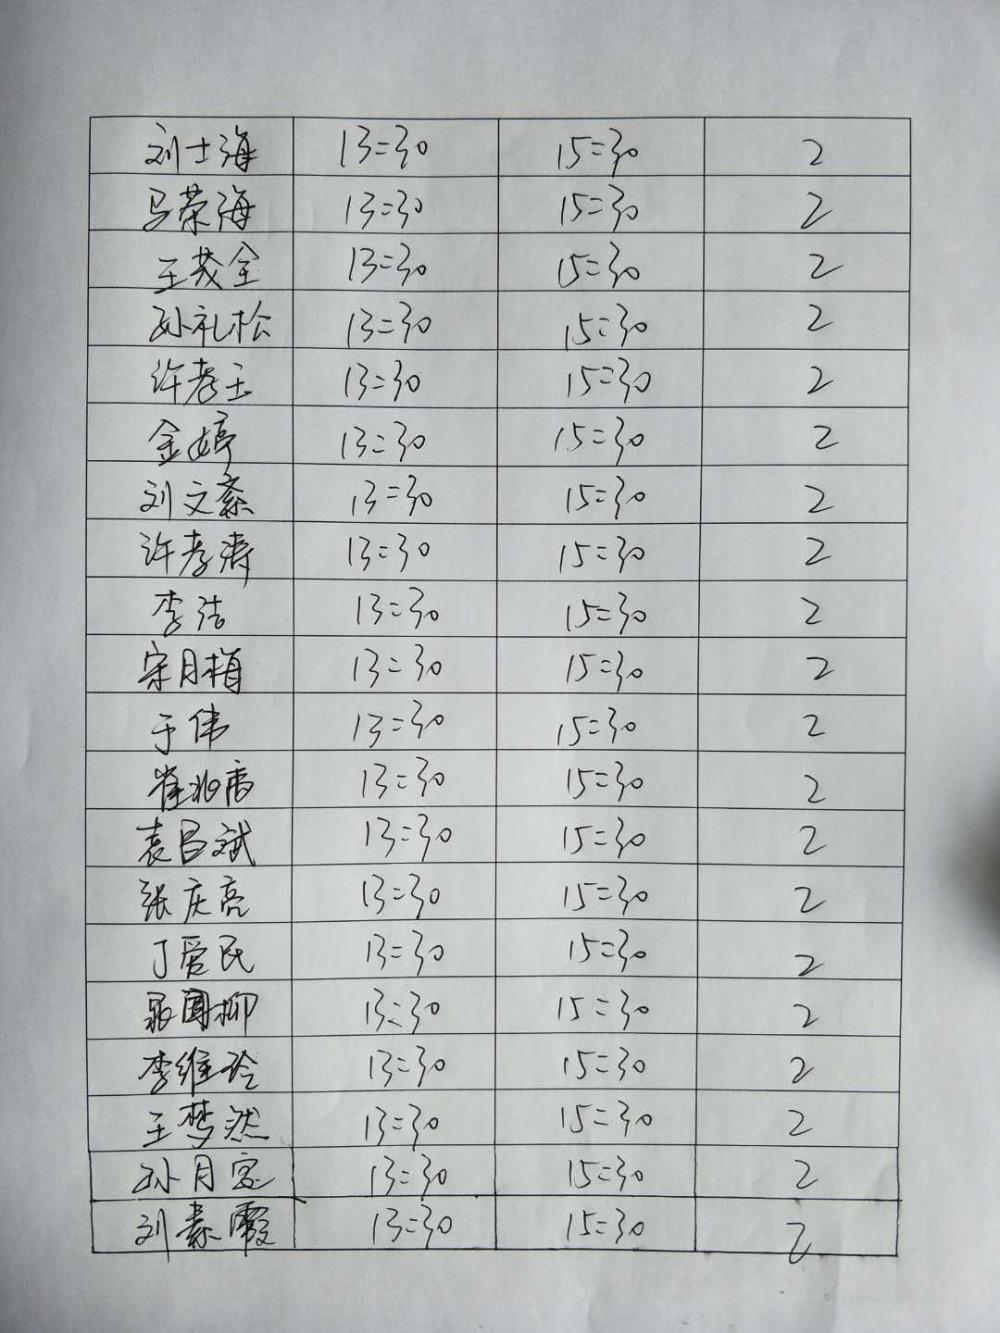 刘士海 13:30 15:30 2
马荣海 13:30 15:30 2
王茂全 13:30 15:30 2
孙礼松 13:30 15:30 2
许孝玉 13:30 15:30 2
金婷 13:30 15:30 2
刘文 13:30 15:30 2
许孝涛 13:30 15:30 2
李洁 13:30 15:30 2
宋月梅 13:30 15:30 2
于伟 13:30 15:30 2
崔兆 13:30 15:30 2
袁昌斌 13:30 15:30 2
张庆亮 13:30 15:30 2
丁爱民 13:30 15:30 2
13:30 15:30 2
李维玲 13:30 15:30 2
王梦然 13:30 15:30 2
孙月 13:30 15:30 2
刘素霞 13:30 15:30 2